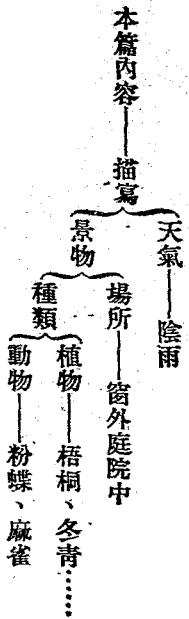 本篇內容——描寫
天氣——陰雨
景物
場所——窗外庭院中
種類
植物——梧桐、冬青……
動物——粉蝶、麻雀